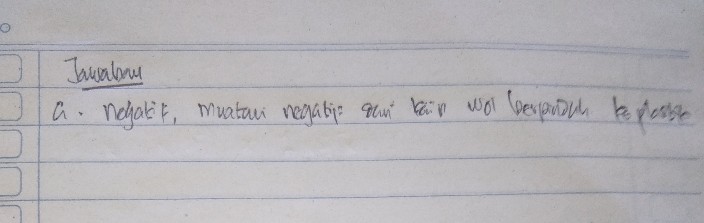 Jawaban
a. negatif, muatan negatif dari kain wol berpindah ke plastik